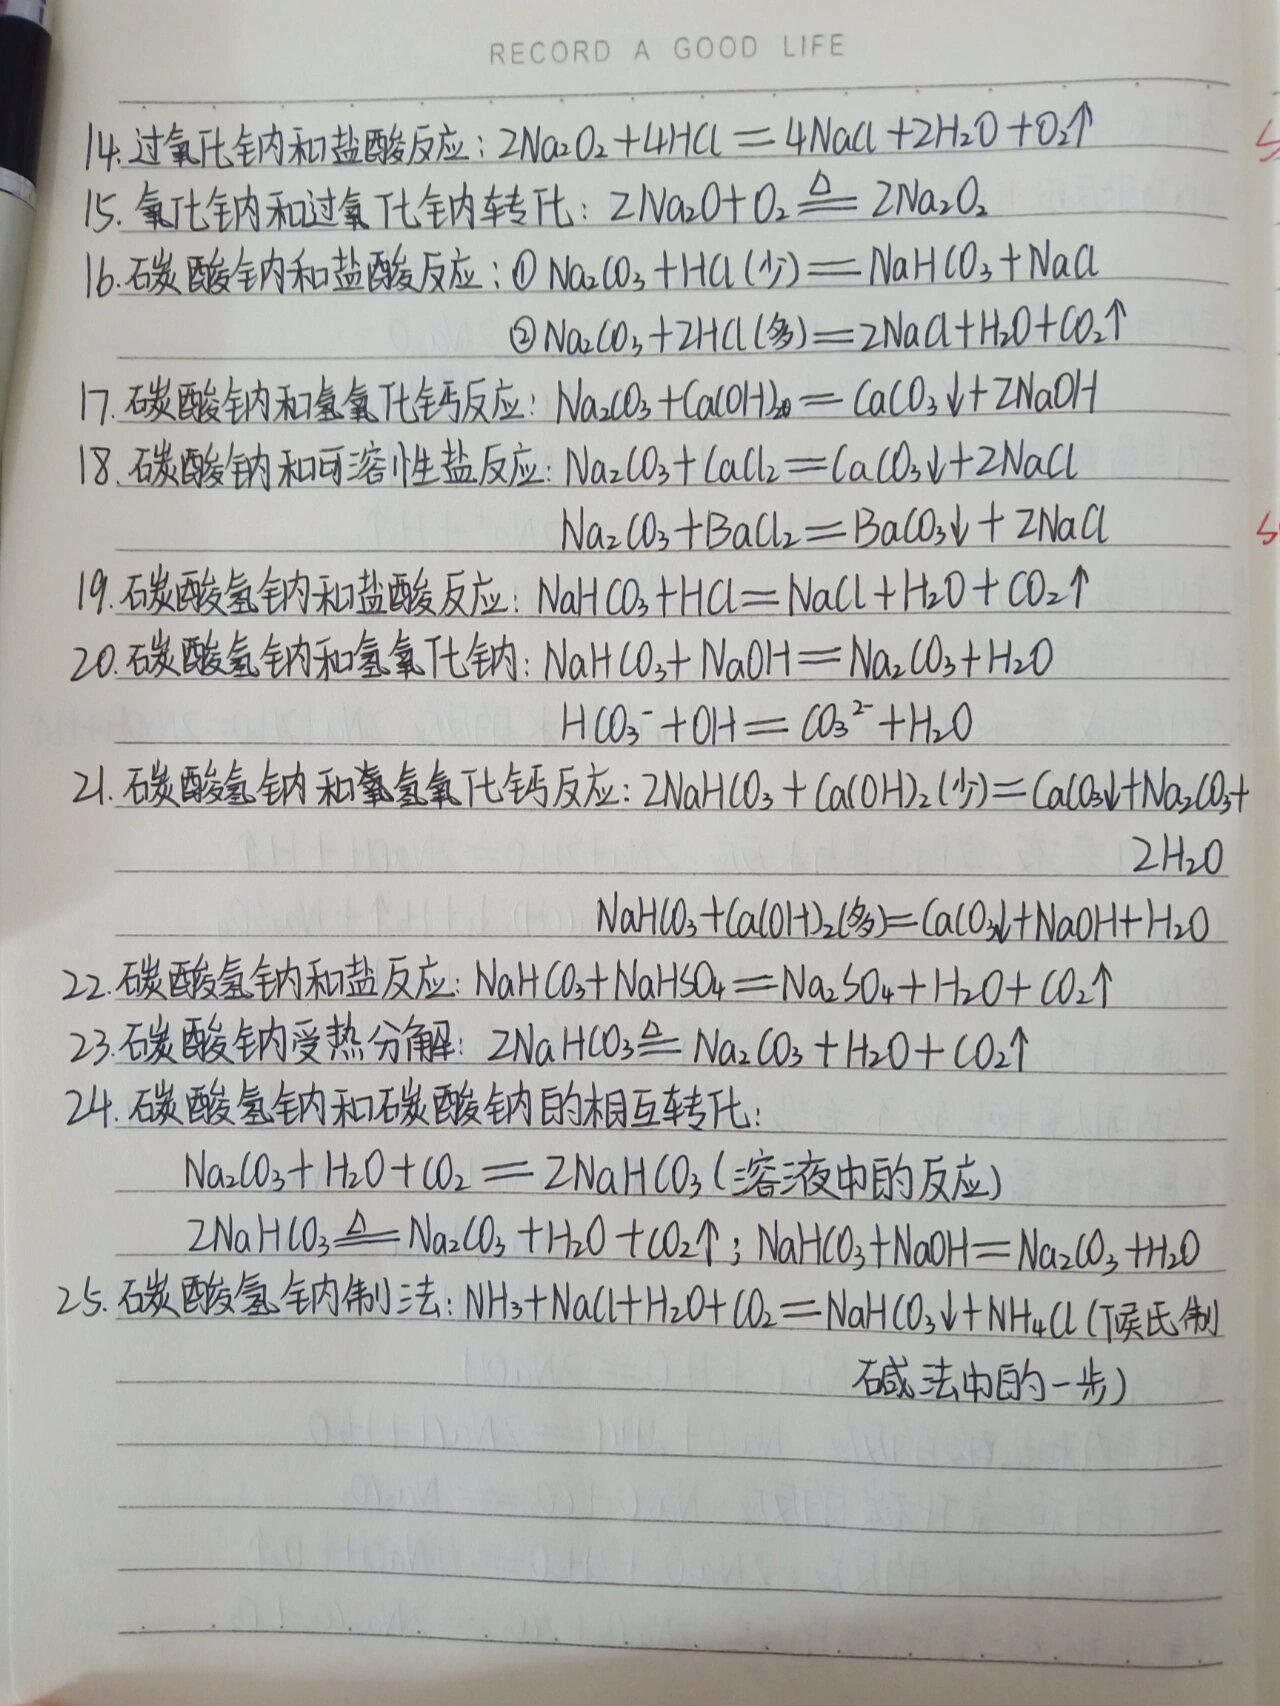 RECORD A GOOD LIFE
14.过氧化钠和盐酸反应：2Na₂O₂+4HCl=4NaCl+2H₂O+O₂↑
15.氧化钠和过氧化钠转化：2Na₂O+O₂≜2Na₂O₂
16.碳酸钠和盐酸反应：①Na₂CO₃+HCl(少)=NaHCO₃+NaCl
②Na₂CO₃+2HCl(多)=2NaCl+H₂O+CO₂↑
17.碳酸钠和氢氧化钙反应：Na₂CO₃+Ca(OH)₂=CaCO₃↓+2NaOH
18.碳酸钠和可溶性盐反应：Na₂CO₃+CaCl₂=CaCO₃↓+2NaCl
Na₂CO₃+BaCl₂=BaCO₃↓+2NaCl
19.碳酸氢钠和盐酸反应：NaHCO₃+HCl=NaCl+H₂O+CO₂↑
20.碳酸氢钠和氢氧化钠：NaHCO₃+NaOH=Na₂CO₃+H₂O
HCO₃⁻+OH=CO₃²⁻+H₂O
21.碳酸氢钠和氢氧化钙反应：2NaHCO₃+Ca(OH)₂(少)=CaCO₃↓+Na₂CO₃+
2H₂O
NaHCO₃+Ca(OH)₂(多)=CaCO₃↓+NaOH+H₂O
22.碳酸氢钠和盐反应：NaHCO₃+NaHSO₄=Na₂SO₄+H₂O+CO₂↑
23.碳酸钠受热分解：2NaHCO₃≜Na₂CO₃+H₂O+CO₂↑
24.碳酸氢钠和碳酸钠的相互转化：
Na₂CO₃+H₂O+CO₂=2NaHCO₃(溶液中的反应)
2NaHCO₃≜Na₂CO₃+H₂O+CO₂↑；NaHCO₃+NaOH=Na₂CO₃+H₂O
25.碳酸氢钠制法：NH₃+NaCl+H₂O+CO₂=NaHCO₃↓+NH₄Cl(侯氏制
碱法中的一步)